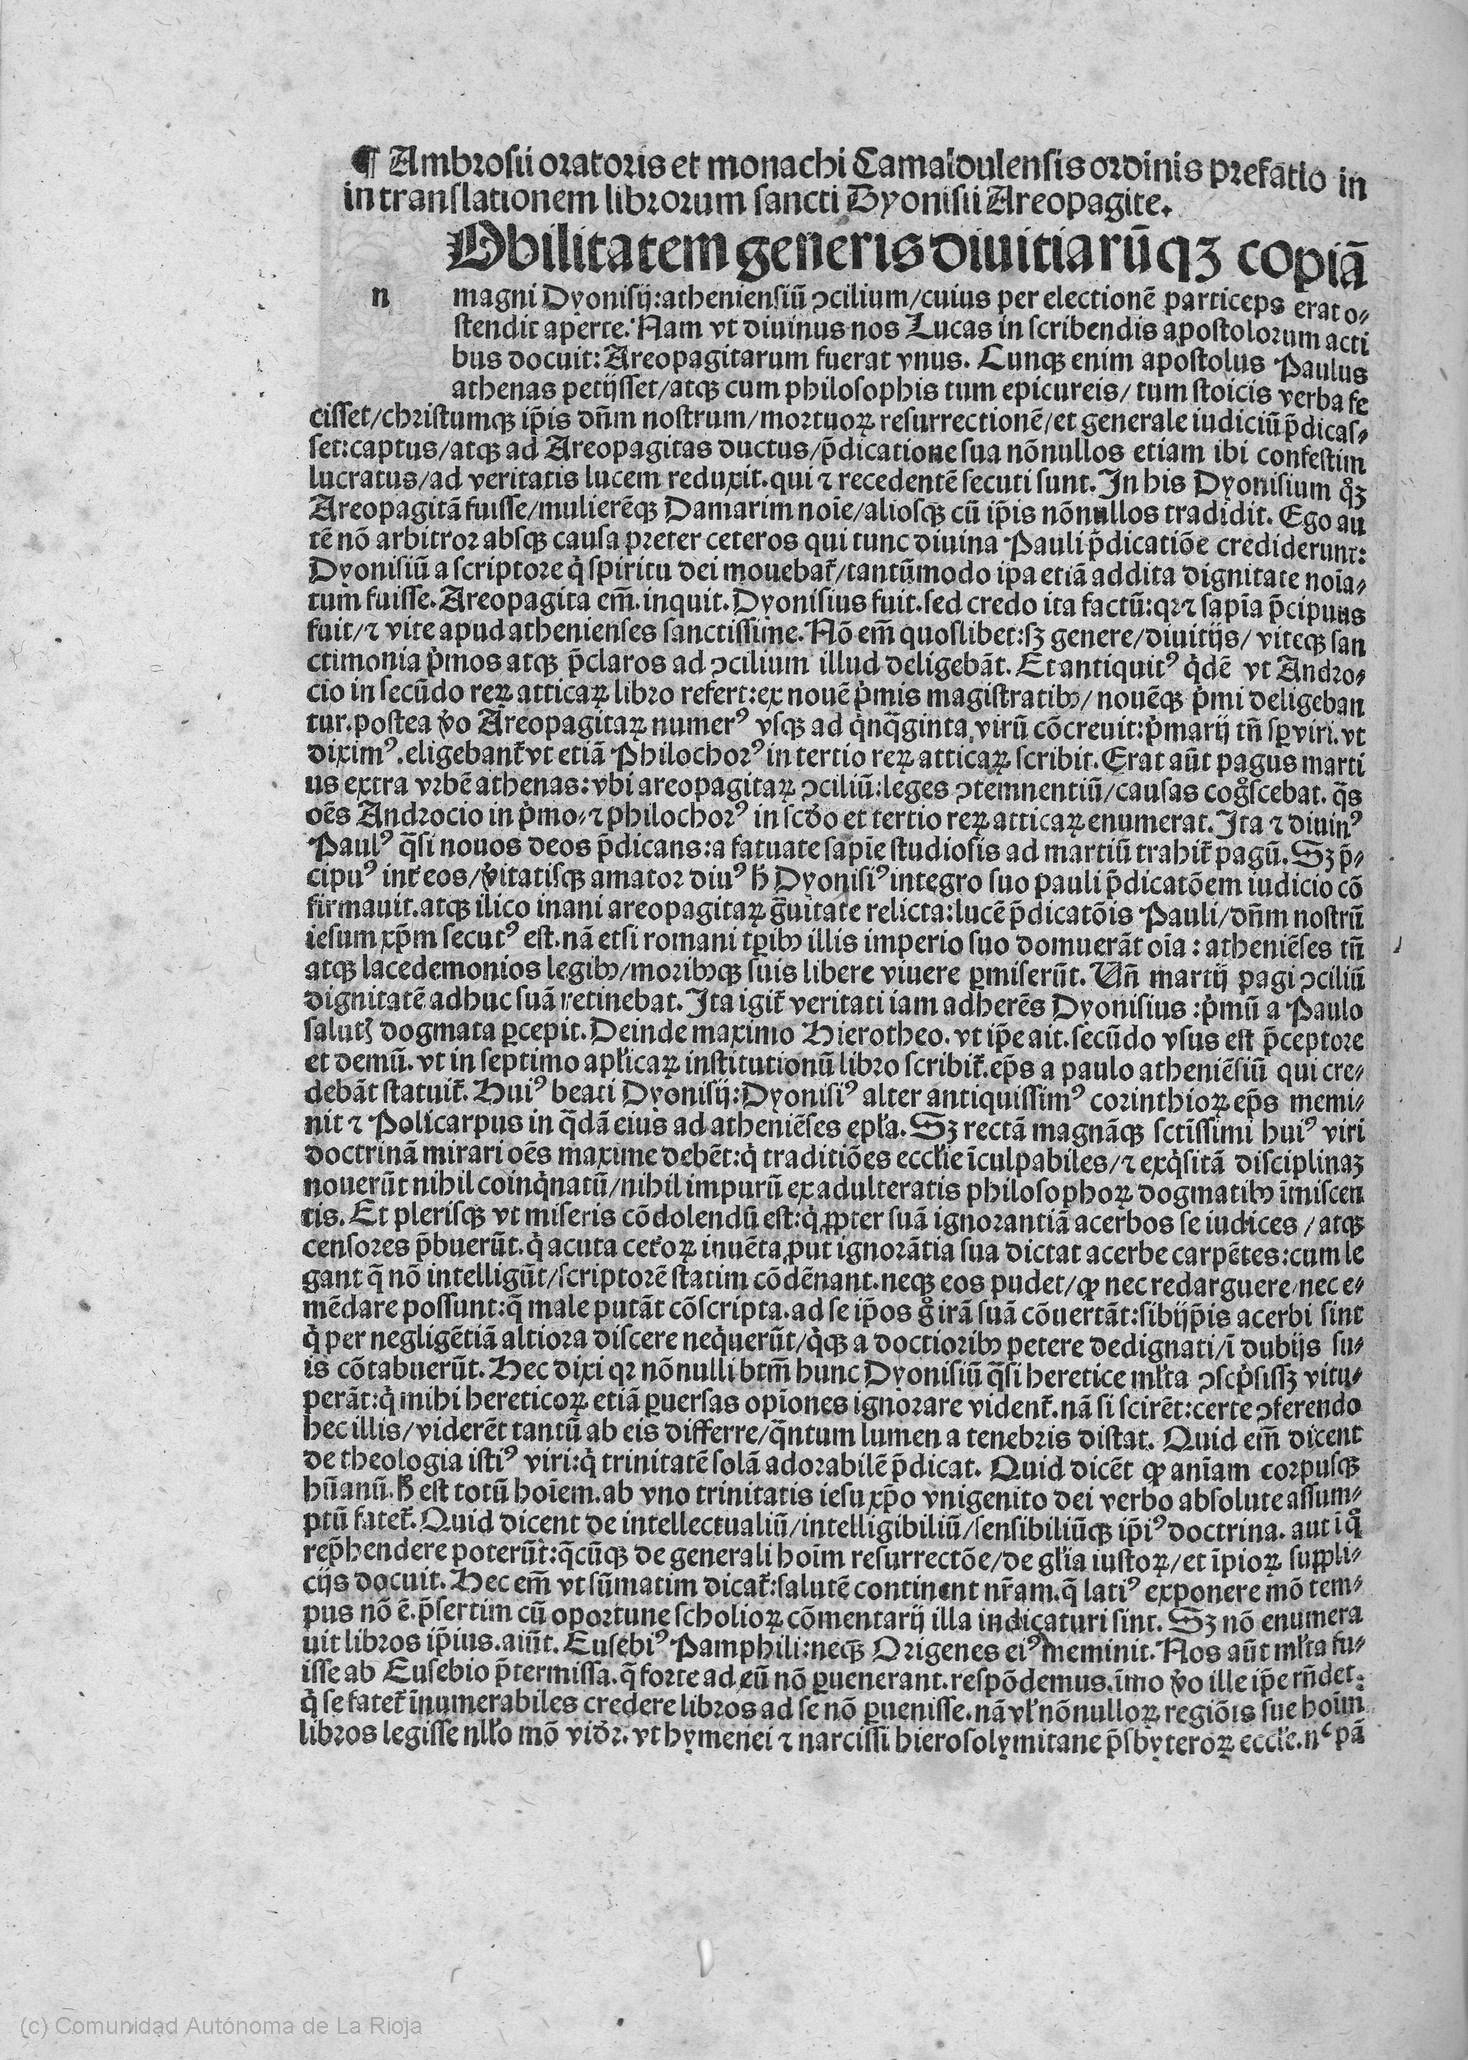 ¶ Ambrosii oratoris et monachi Camaldulensis ordinis prefatio in
in translationem librorum sancti Dyonisii Areopagite.
Obilitatem generis diuitiarũqꝫ copiã
n magni Dyonisij:atheniensiũ ꝯcilium/cuius per electionẽ particeps erat o⸗
stendit aperte. Nam vt diuinus nos Lucas in scribendis apostolorum acti
bus docuit: Areopagitarum fuerat vnus. Cunqꝫ enim apostolus Paulus
athenas petijsset/atqꝫ cum philosophis tum epicureis/ tum stoicis verba fe
cisset/christumqꝫ ip̃is dñm nostrum/mortuoꝝ resurrectionẽ/et generale iudiciũ p̃dicas⸗
set:captus/atqꝫ ad Areopagitas ductus/p̃dicatione sua nõnullos etiam ibi confestim
lucratus/ad veritatis lucem reduxit.qui ⁊ recedentẽ secuti sunt. In his Dyonisium qͦꝫ
Areopagitã fuisse/mulierẽqꝫ Damarim noĩe/aliosqꝫ cũ ip̃is nõnullos tradidit. Ego au
tẽ nõ arbitror absqꝫ causa preter ceteros qui tunc diuina Pauli p̃dicatiõe crediderunt:
Dyonisiũ a scriptore q̇ spiritu dei mouebat᷑/tantũmodo ipa etiã addita dignitate noĩa⸗
tum fuisse. Areopagita em̃.inquit.Dyonisius fuit.sed credo ita factũ:qꝛ ⁊ sapĩa p̃cipuus
fuit/⁊ vite apud athenienses sanctissime. Nõ em̃ quoslibet:sꝫ genere/diuitijs/ viteqꝫ san
ctimonia p̓mos atqꝫ p̃claros ad ꝯcilium illud deligebãt. Et antiquitꝰ q̇dẽ vt Andro⸗
cio in secũdo reꝝ atticaꝝ libro refert:ex nouẽ p̓mis magistratibꝰ/ nouẽqꝫ p̓mi deligeban
tur.postea v̓o Areopagitaꝝ numerꝰ vsqꝫ ad q̇nq̃ginta virũ cõcreuit:p̓marij tñ sꝑ viri.vt
diximꝰ.eligebant᷑ vt etiã Philochorꝰ in tertio reꝝ atticaꝝ scribit. Erat aũt pagus marti
us extra vrbẽ athenas:vbi areopagitaꝝ ꝯciliũ:leges ꝯtemnentiũ/causas cogͦscebat. q̃s
oẽs Androcio in p̓mo⸗⁊ philochorꝰ in scd̓o et tertio reꝝ atticaꝝ enumerat. Ita ⁊ diuinꝰ
Paulꝰ q̃si nouos deos p̃dicans:a fatuate sapĩe studiosis ad martiũ trahit᷑ pagũ. Sꝫ p̃⸗
cipuꝰ int᷑ eos/v̓itatisqꝫ amator diuꝰ h̓ Dyonisiꝰ integro suo pauli p̃dicatõem iudicio cõ
firmauit.atqꝫ ilico inani areopagitaꝝ g̃uitate relicta:lucẽ p̃dicatõis Pauli/dñm nostrũ
iesum xp̃m secutꝰ est.nã etsi romani tꝑibꝰ illis imperio suo domuerãt oĩa: atheniẽses tñ
atqꝫ lacedemonios legibꝰ/moribꝰqꝫ suis libere viuere ꝑmiserũt. Vñ martij pagi ꝯciliũ
dignitatẽ adhuc suã retinebat. Ita igit᷑ veritati iam adherẽs Dyonisius :p̓mũ a Paulo
salutꝭ dogmata ꝑcepit. Deinde maximo Hierotheo.vt ip̃e ait.secũdo vsus est p̃ceptore
et demũ.vt in septimo apl̓icaꝝ institutionũ libro scribit᷑.ep̃s a paulo atheniẽsiũ qui cre⸗
debãt statuit᷑. Huiꝰ beati Dyonisij:Dyonisiꝰ alter antiquissimꝰ corinthioꝝ ep̃s memi⸗
nit ⁊ Policarpus in q̃dã eius ad atheniẽses epl̓a. Sꝫ rectã magnãqꝫ sctĩssimi huiꝰ viri
doctrinã mirari oẽs maxime debẽt:q̇ traditiões eccl̓ie ĩculpabiles/⁊ exq̇sitã disciplinaꝫ
nouerũt nihil coinq̇natũ/nihil impurũ ex adulteratis philosophoꝝ dogmatibꝰ ĩmiscen
tis. Et plerisqꝫ vt miseris cõdolendũ est:q̇ ꝓpter suã ignorantiã acerbos se iudices /atqꝫ
censores p̃buerũt.q̇ acuta cet᷑oꝝ inuẽta ꝓut ignorãtia sua dictat acerbe carpẽtes:cum le
gant q̃ nõ intelligũt/scriptorẽ statim cõdẽnant.neqꝫ eos pudet/ꝙ nec redarguere/nec e⸗
mẽdare possunt:q̃ male putãt cõscripta.ad se ip̃os gͦ irã suã cõuertãt:sibijp̃is acerbi sint
q̇ per negligẽtiã altiora discere neq̇uerũt/q̇qꝫ a doctioribꝰ petere dedignati/ĩ dubijs su⸗
is cõtabuerũt. Hec dixi qꝛ nõnulli btm̃ hunc Dyonisiũ q̃si heretice ml̓ta ꝯscp̓sissꝫ vitu⸗
perãt:q̇ mihi hereticoꝝ etiã ꝑuersas opĩones ignorare vident᷑.nã si scirẽt:certe ꝯferendo
hec illis/viderẽt tantũ ab eis differre/q̃ntum lumen a tenebris distat. Quid em̃ dicent
de theologia istiꝰ viri:q̇ trinitatẽ solã adorabilẽ p̃dicat. Quid dicẽt ꝙ anĩam corpusqꝫ
hũanũ.h̓ est totũ hoĩem.ab vno trinitatis iesu xp̃o vnigenito dei verbo absolute assum⸗
ptũ fatet᷑. Quid dicent de intellectualiũ/intelligibiliũ/sensibiliũqꝫ ip̃iꝰ doctrina. aut ĩ qͦ
rep̃hendere poterũt:q̃cũqꝫ de generali hoĩm resurrectõe/de gl̓ia iustoꝝ/et ĩpioꝝ suppli⸗
cijs docuit. Hec em̃ vt sũmatim dicat᷑:salutẽ continent nr̃am.q̃ latiꝰ exponere mõ tem⸗
pus nõ ẽ.p̃sertim cũ oportune scholioꝝ cõmentarij illa indicaturi sint. Sꝫ nõ enumera
uit libros ip̃ius.aiũt. Eusebiꝰ Pamphili:neqꝫ Origenes eiꝰ meminit. Nos aũt ml̓ta fu⸗
isse ab Eusebio p̃termissa.q̃ forte ad eũ nõ ꝑuenerant.respõdemus.ĩmo v̓o ille ip̃e rñdet:
q̇ se fatet᷑ ĩnumerabiles credere libros ad se nõ ꝑuenisse.nã vl̓ nõnulloꝝ regiõis sue hoĩm
libros legisse nll̓o mõ vid̓r.vt hymenei ⁊ narcissi hierosolymitane p̃sbyteroꝝ eccl̓e.nᶜ pã
(c) Comunidad Autónoma de La Rioja